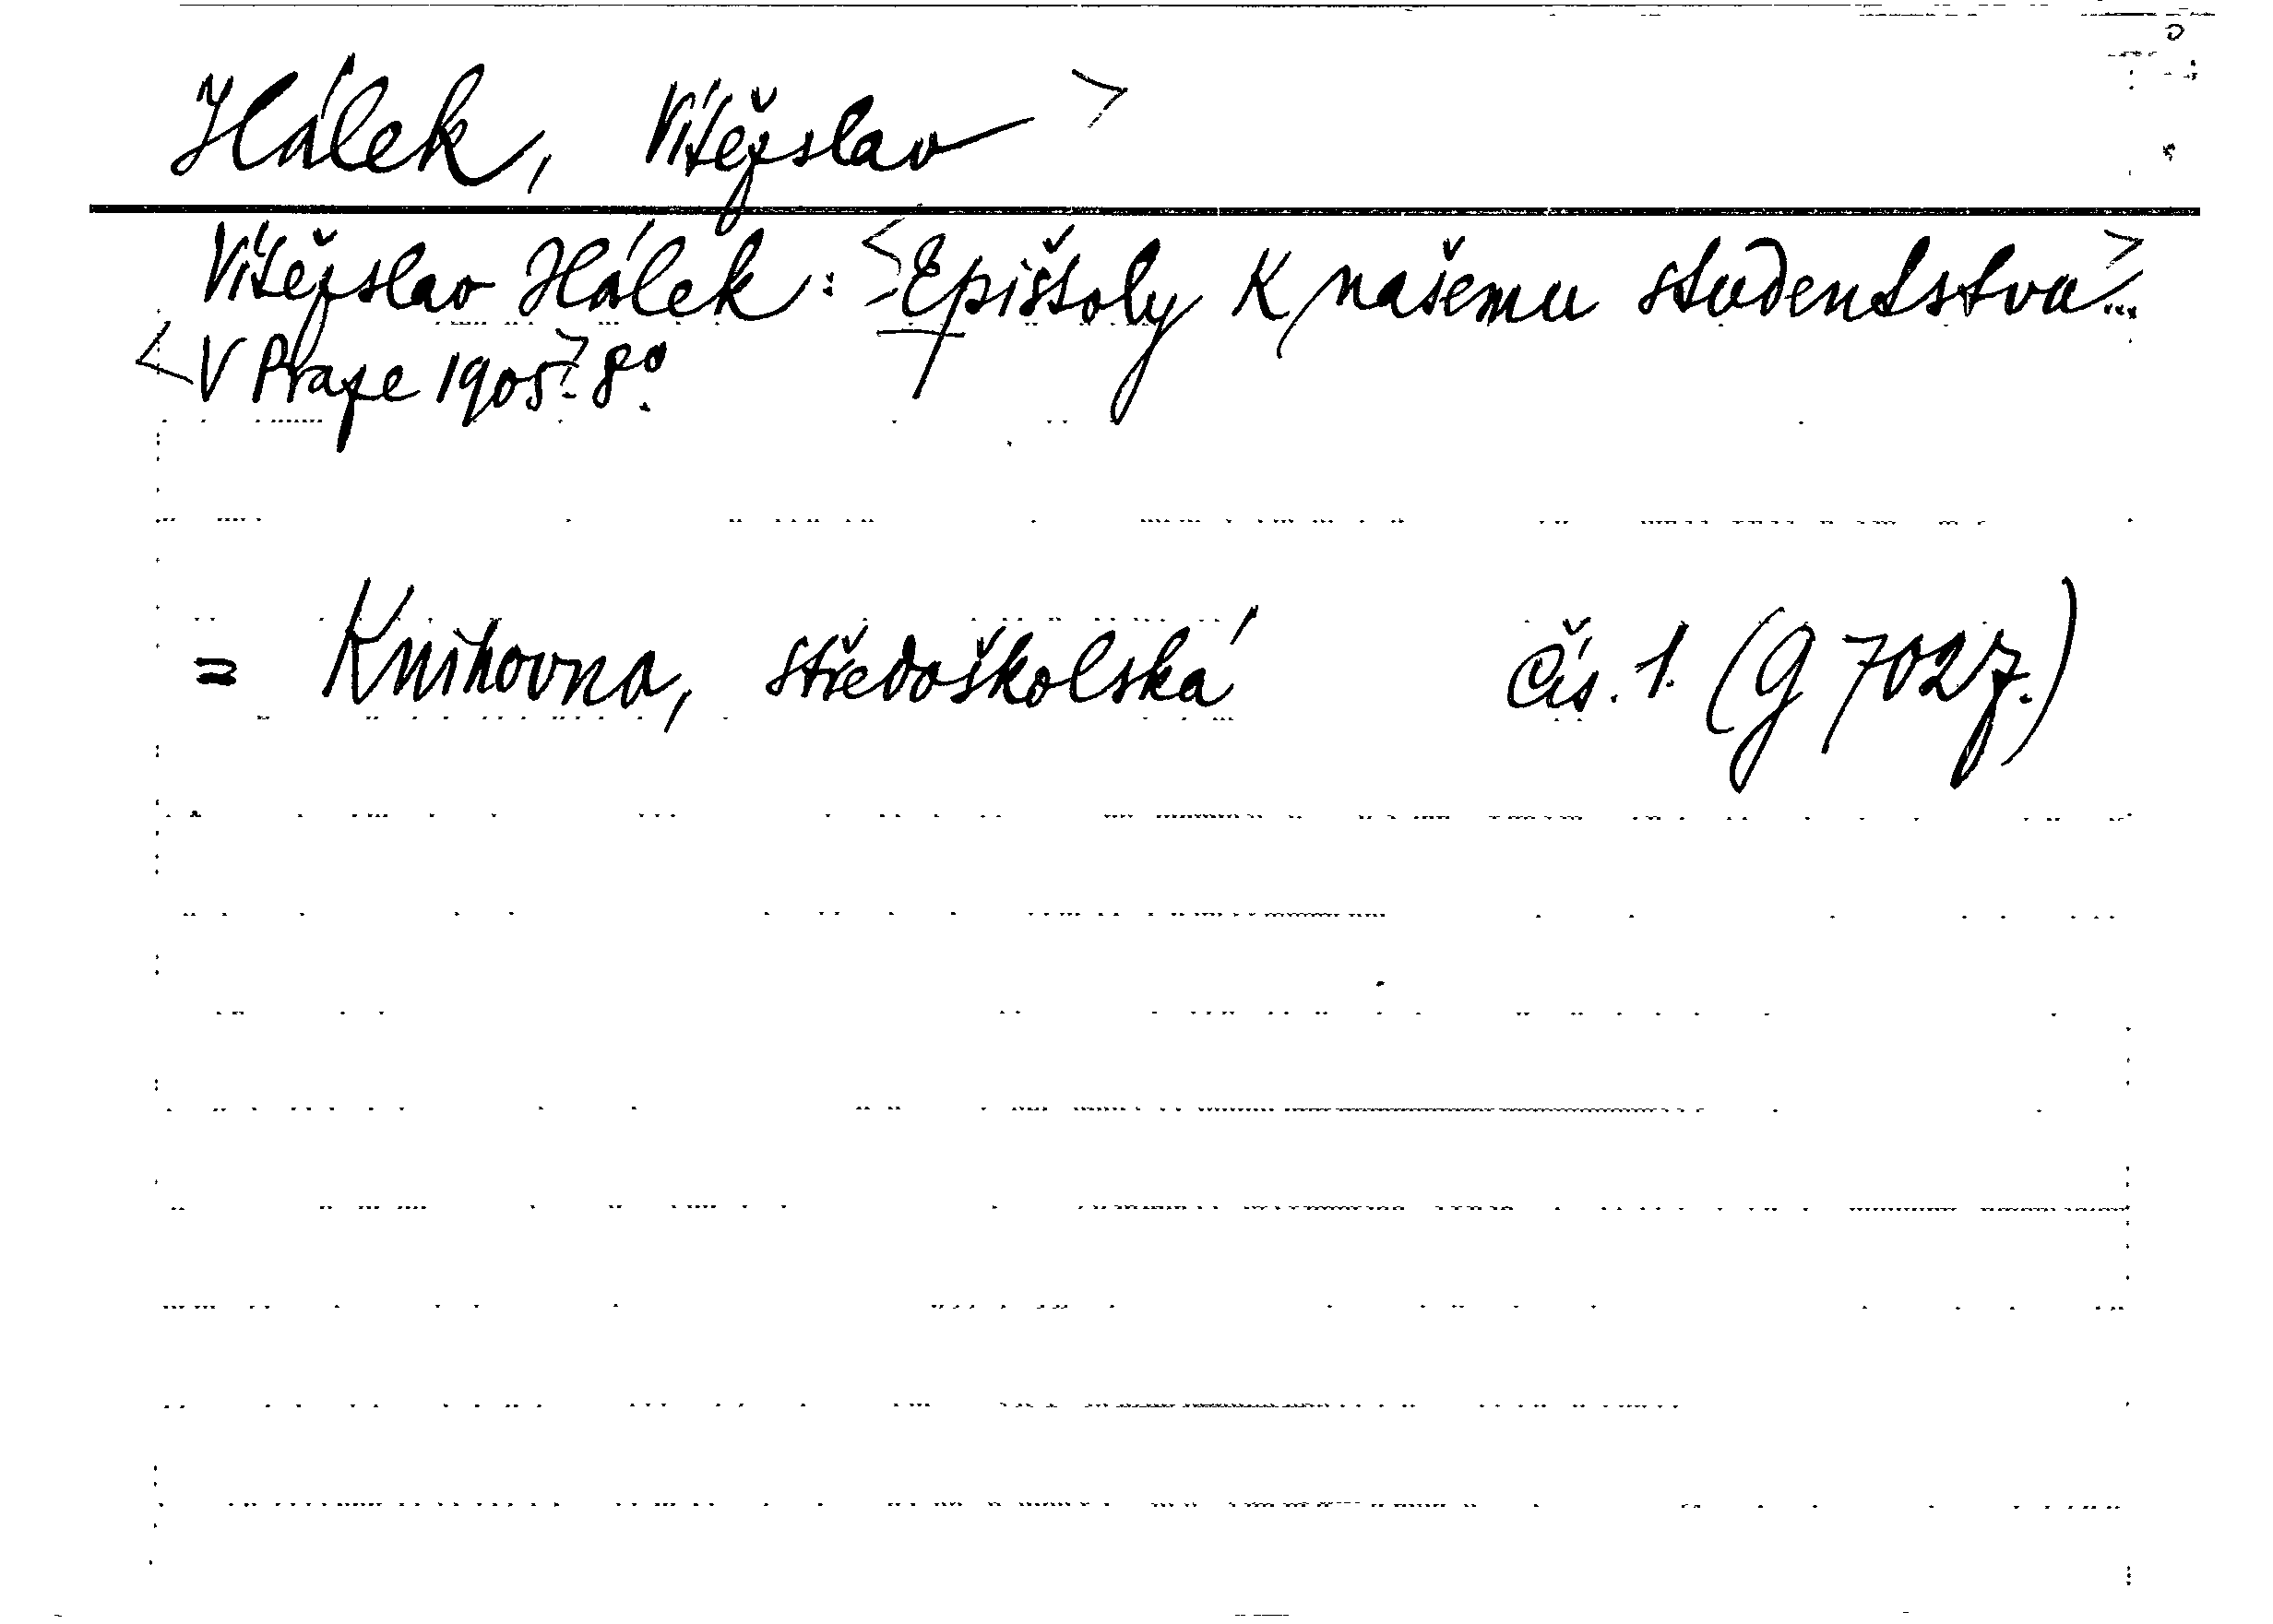 Hálek, Vítězslav >
Vítězslav Hálek: <Epištoly k našemu studentstvu>...
<V Praze 1905.> 8º.
= Knihovna, středoškolská čís. 1. (G 702 z.)